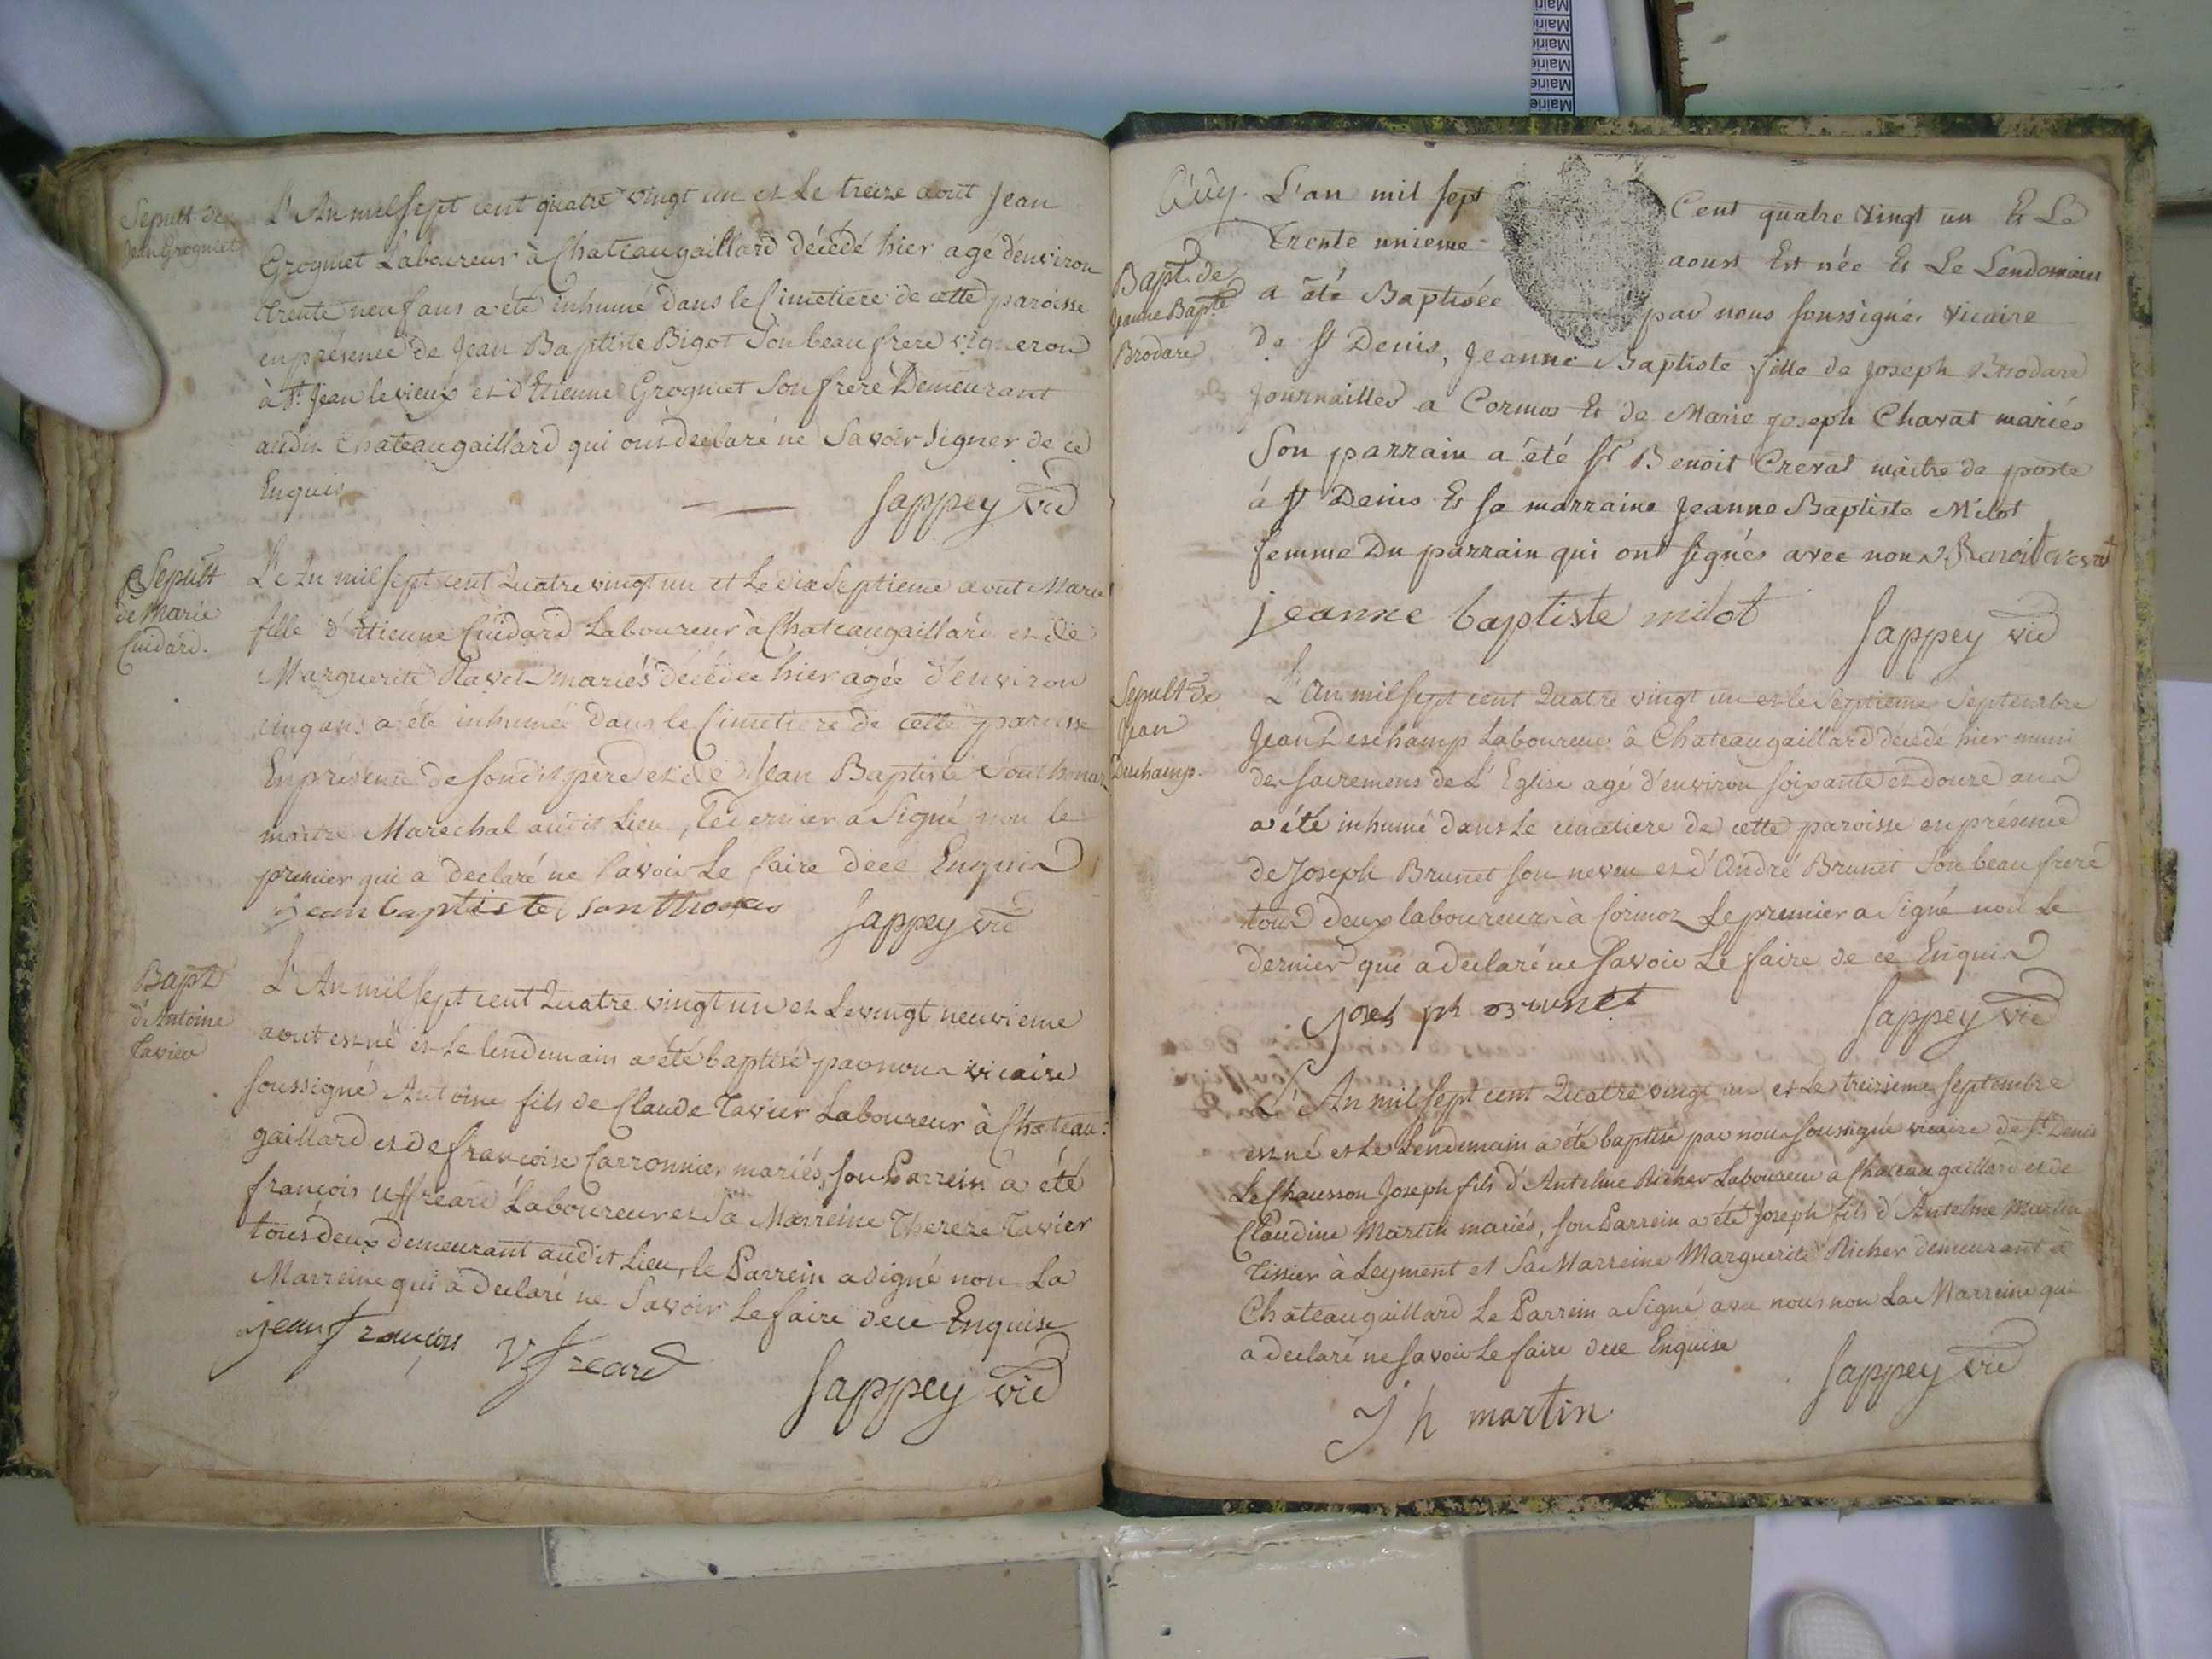 Sepult de
Jean Grogniet
L'An mil sept cent quatre vingt un et Le treize aout Jean
Grogniet Laboureur à Chateaugaillard décédé hier agé d'environ
trente neuf ans a été inhumé dans le Cimetiere de cette paroisse
en présence de Jean Baptiste Bigot Son beau frere vigneron
à St Jean le vieux et d'Etienne Grogniet Son frere Demeurant
audit Chateaugaillard qui ont declaré ne Savoir Signer de ce
Enquis
Sappey vic
Sepult
de Marie
Cuidard.
L'An mil sept cent Quatre vingt un et Le dix Septieme aout Marie
fille d'Etienne Cuidard Laboureur à Chateaugaillard et de
Marguerite Ravet mariés décédée hier agée d'environ
cinq ans a été inhumée dans le Cimetiere de cette paroisse
En présence de son dit père et de Jean Baptiste Sonthonax
maitre Marechal audit Lieu, Le dernier a Signé non le
premier qui a declaré ne Savoir Le faire dece Enquis
jean baptiste sonthonax
Sappey vic
Bapt
d'Antoine
Tavier
L'An mil sept cent Quatre vingt un et Le vingt neuvieme
aout est né et Le lendemain a été baptisé par nous vicaire
soussigné Antoine fils de Claude Tavier Laboureur à Chateau=
gaillard et de françoise Carronnier mariés, son Parrein a été
françois uffreard Laboureur et Sa Marreine Thereze Tavier
tous deux demeurant audit Lieu, le Parrein a Signé non La
Marreine qui a declaré ne Savoir Le faire dece Enquise
jean françois uffreard
Sappey vic
L'an mil sept Cent quatre vingt un Et Le
trente unieme aoust Est née Et Le Lendemain
Bapt. de
Jeanne Bapte
Brodard
a été Baptisée par nous soussigné vicaire
de St Denis, Jeanne Baptiste fille de Joseph Brodard
Journaillier a Cormos Et de Marie joseph Charat mariés
Son parrain a été Sr Benoit Creval maitre de poste
à St Denis Et sa marraine Jeanne Baptiste Milot
femme Du parrain qui ont signés avec nous. Benoit creval
jeanne baptiste milot
Sappey vic
Sepult de
Jean
Deschamp.
L'An mil sept cent Quatre vingt un et le Septieme Septembre
Jean Deschamp Laboureur à Chateaugaillard décédé hier muni
des sacremens de L'Eglise agé d'environ soixante et douze ans
a été inhumé dans Le cimetiere de cette paroisse en présence
de Joseph Brunet son neveu et d'André Brunet Son beau frere
tous deux laboureurs à Cormoz Le premier a Signé non Le
dernier qui a declaré ne savoir Le faire de ce Enquis
joseph brunet
Sappey vic
L'An mil sept cent Quatre vingt un et Le treizieme septembre
est né et Le Lendemain a été baptisé par nous soussigné vicaire de St Denis
Le Chausson Joseph fils d'Antelme Richer Laboureur a Chateaugaillard et de
Claudine Martin mariés, son Parrein a été Joseph fils d'Antelme Martin
Tissier à Leyment et Sa Marreine Marguerite Richer demeurant à
Chateaugaillard Le Parrein a Signé avec nous non La Marreine qui
a declaré ne savoir Le faire dece Enquise
Sappey vic
J h martin